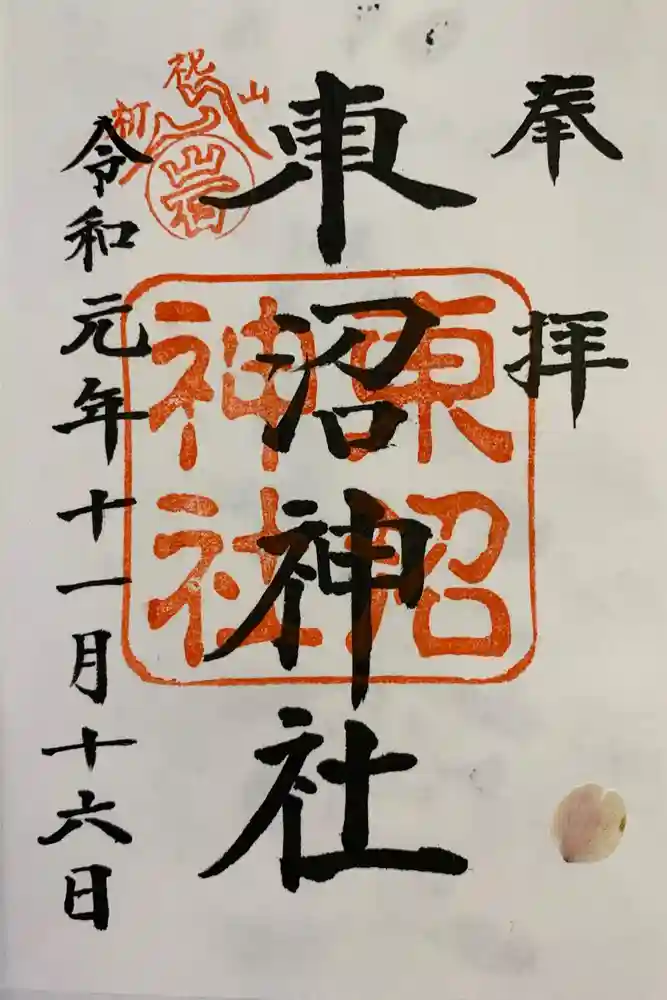 奉拝
東沼神社
東沼
神社
令和元年十一月十六日
岩